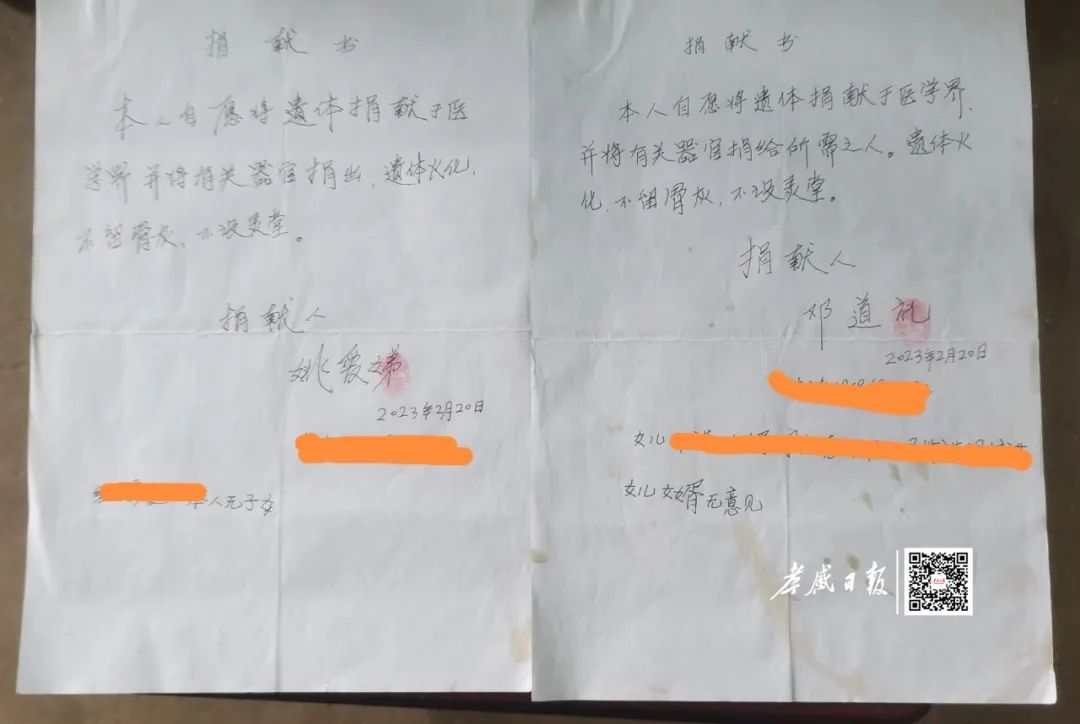 捐献书
本人自愿将遗体捐献于医
学界并将有关器官捐出，遗体火化，
不留骨灰、不设灵堂。
捐献人
姚爱娣
2023年2月20日
本人无子女
捐献书
本人自愿将遗体捐献于医学界，
并将有关器官捐给所需之人。遗体火
化、不留骨灰、不设灵堂。
捐献人
邓道礼
2023年2月20日
女儿
女儿女婿无意见
孝感日报